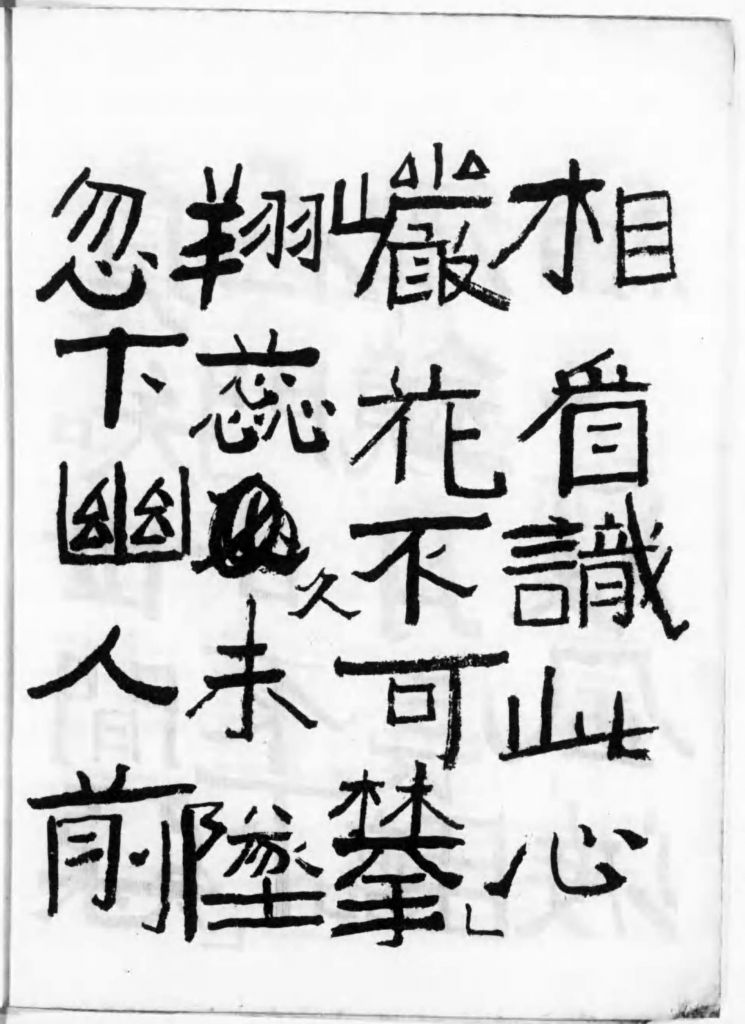 相看識此心
巖花不可攀
翔蕊久未墜
忽下幽人前